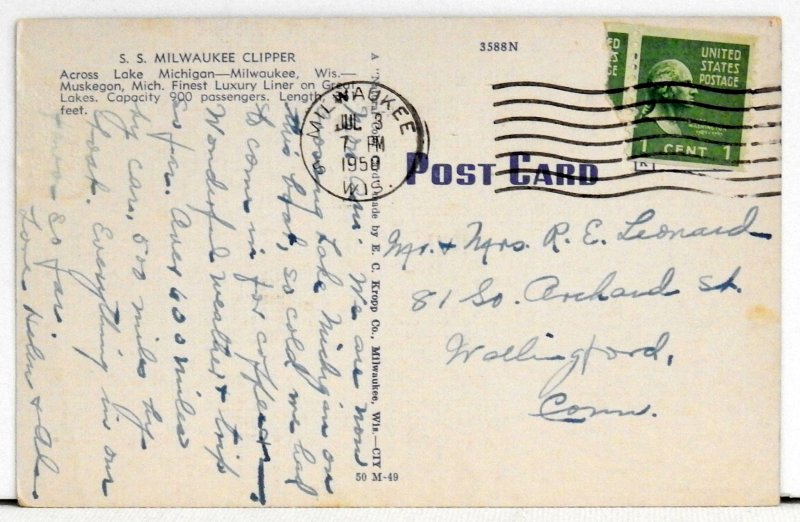 S. S. MILWAUKEE CLIPPER
Across Lake Michigan—Milwaukee, Wis.—
Muskegon, Mich. Finest Luxury Liner on Great
Lakes. Capacity 900 passengers. Length,
feet.
3588N
UNITED
STATES
POSTAGE
WASHINGTON
1 CENT 1
MILWAUKEE
JUL 3
7 PM
1950
WIS.
POST CARD
made by E. C. Kropp Co., Milwaukee, Wis.—CIY
50 M-49
We are now
crossing Lake Michigan on
this boat, so cold we had
to come in for coffee.
Wonderful weather & trip
so far. Over 600 miles
by car, 500 miles by
boat. Everything in our
favor so far
Love Helen & Al
Mr. & Mrs. R. E. Leonard
81 So. Orchard St.
Wallingford,
Conn.